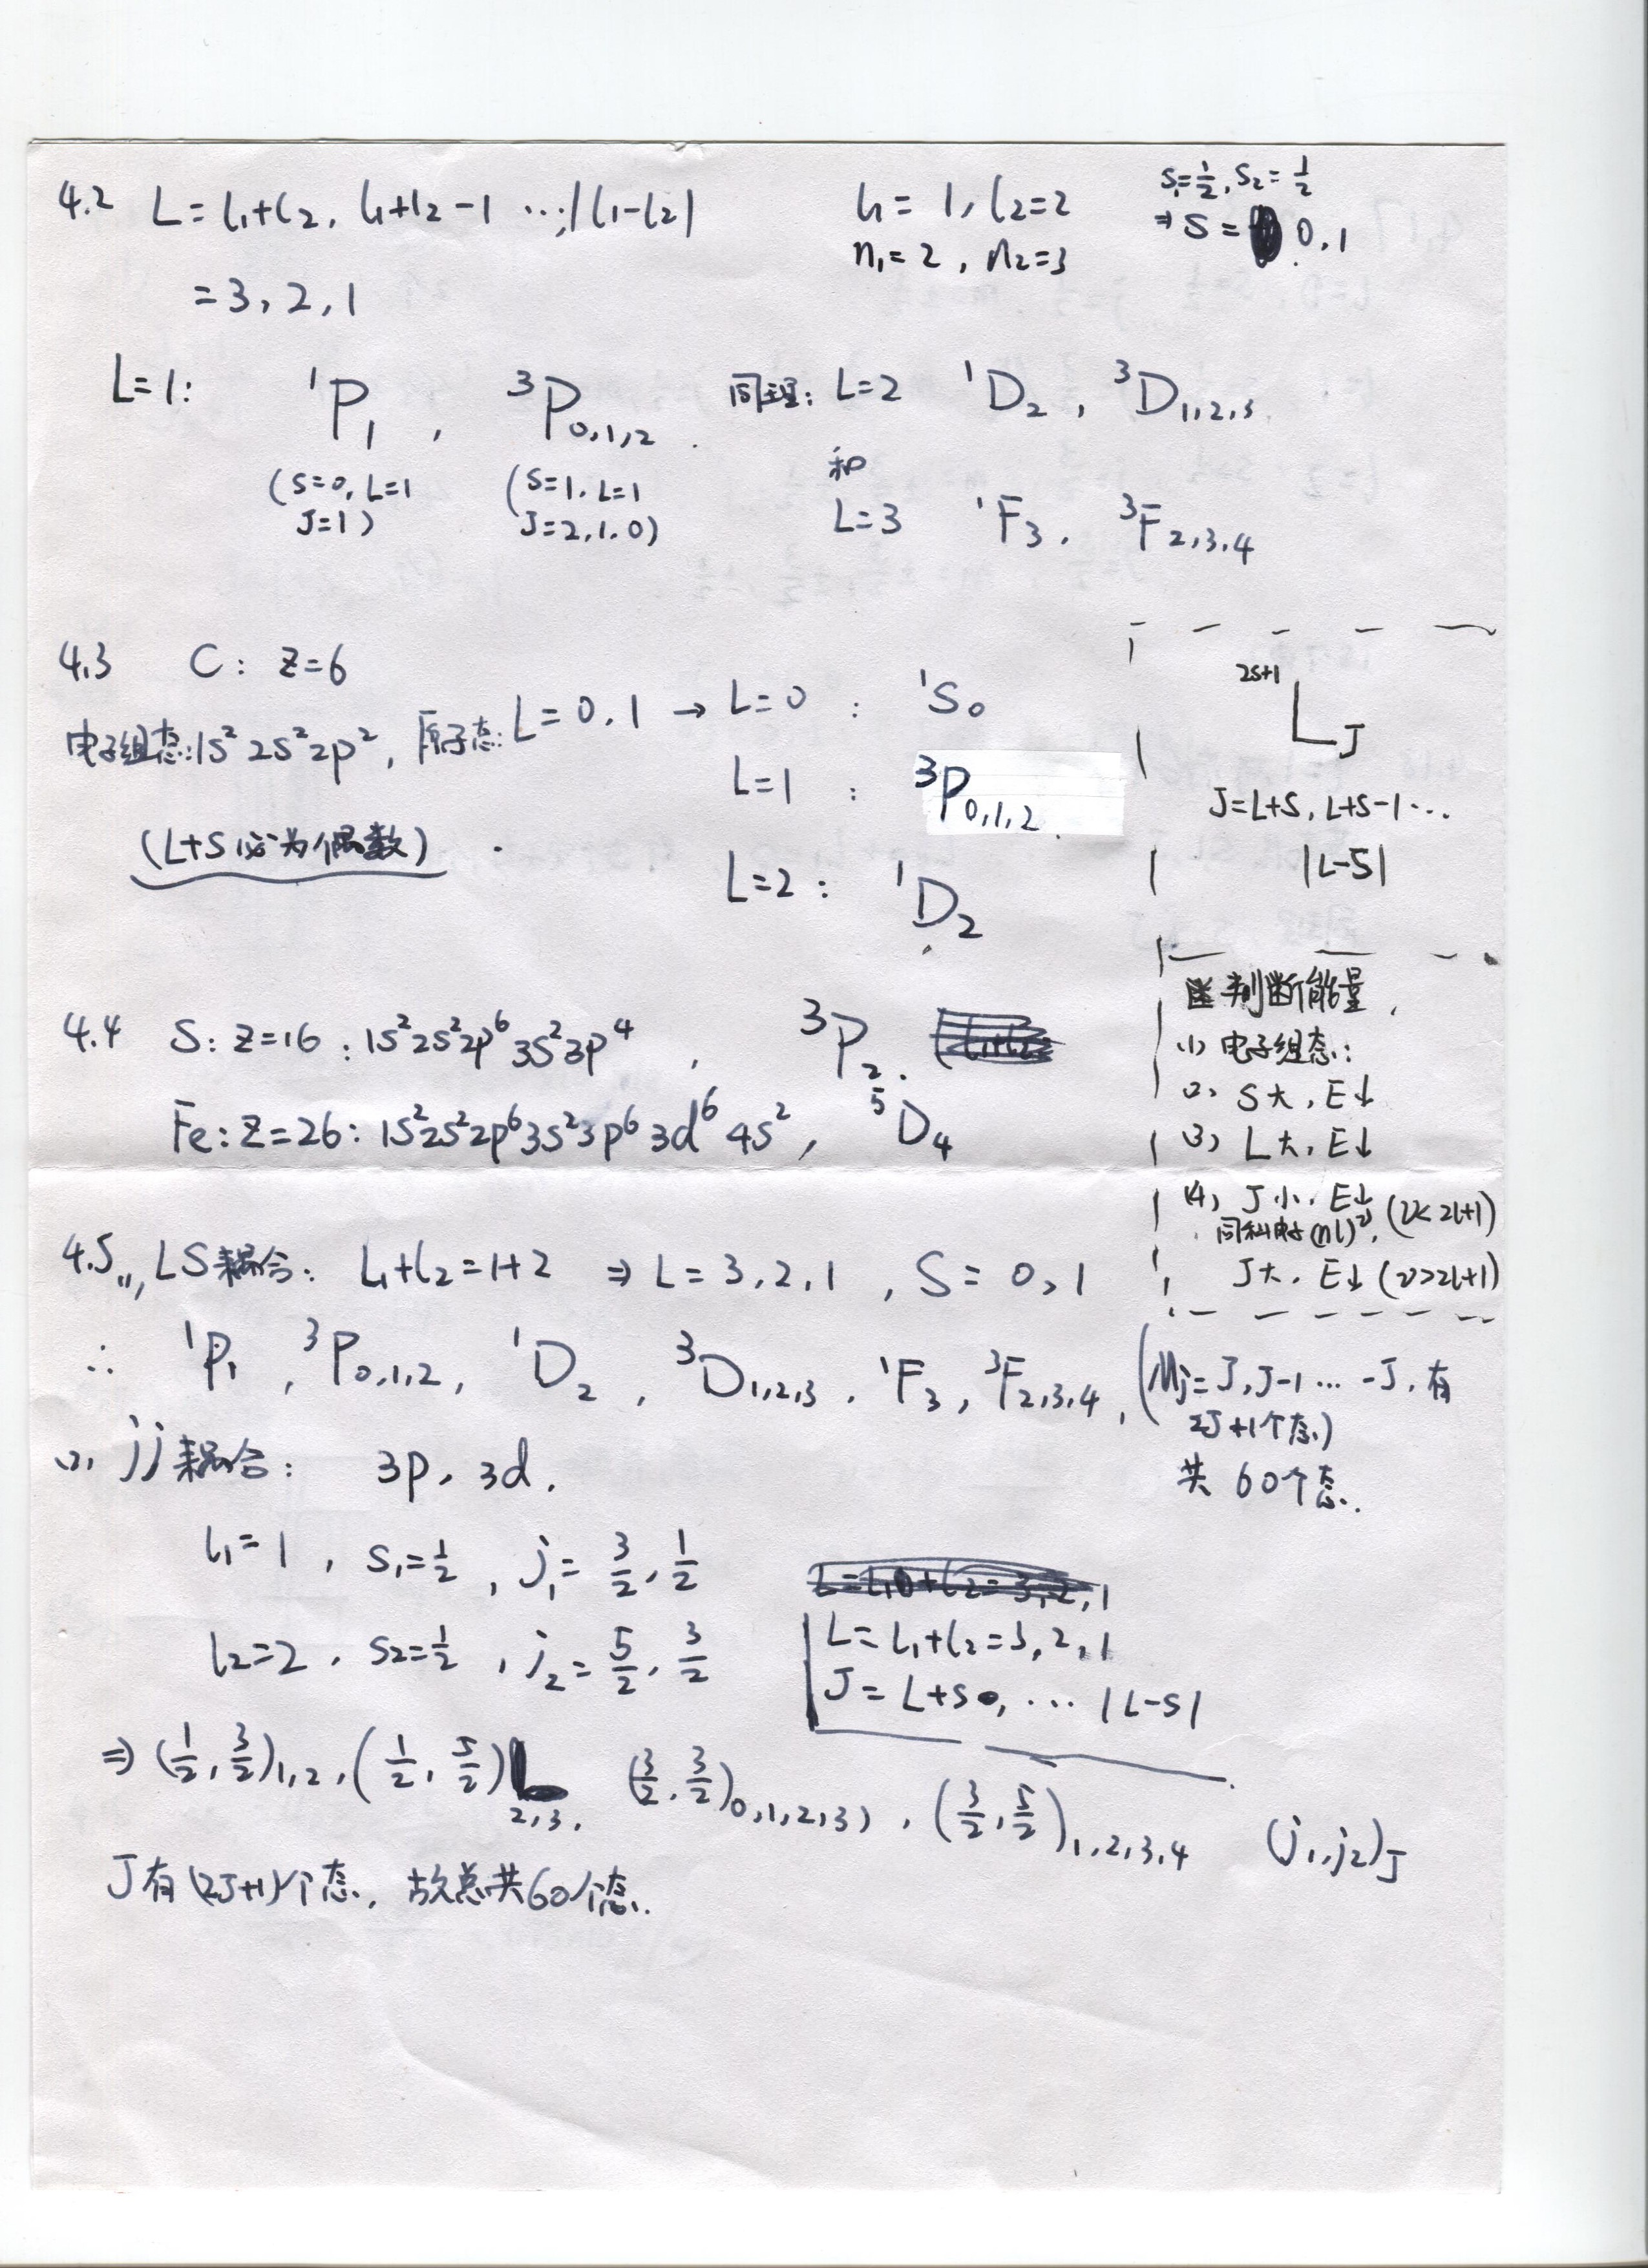 4.2 L=l₁+l₂, l₁+l₂-1 …, |l₁-l₂|
l₁=1, l₂=2
n₁=2, n₂=3
s₁=1/2, s₂=1/2
⇒ S= 0,1
=3,2,1
L=1: ¹P₁, ³P₀,₁,₂. 同理: L=2 ¹D₂, ³D₁,₂,₃
(S=0, L=1
J=1)
(S=1. L=1
J=2,1,0)
和
L=3 ¹F₃. ³F₂,₃,₄
4.3 C: Z=6
电子组态:1s² 2s² 2p², 原子态: L=0,1 → L=0 : ¹S₀
L=1 : ³P₀,₁,₂.
(L+S必为偶数)
L=2: ¹D₂
²ˢ⁺¹L_J
J=L+S, L+S-1…
|L-S|
判断能量.
(1) 电子组态:
(2) S大, E↓
(3) L大, E↓
(4) J小. E↓ (ν<2l+1)
同科电子(nl)^ν,
J大. E↓ (ν>2l+1)
4.4 S: Z=16: 1s²2s²2p⁶3s²3p⁴, ³P₂.
Fe: Z=26: 1s²2s²2p⁶3s²3p⁶3d⁶4s², ⁵D₄
4.5 (1) LS耦合: l₁+l₂=1+2 ⇒ L=3,2,1, S=0,1
∴ ¹P₁, ³P₀,₁,₂, ¹D₂, ³D₁,₂,₃. ¹F₃, ³F₂,₃,₄,
(Mj=J,J-1…-J, 有
2J+1个态)
共60个态.
(2) jj耦合: 3p, 3d.
l₁=1, s₁=1/2, j₁=3/2, 1/2
l₂=2, s₂=1/2, j₂=5/2, 3/2
L=l₁+l₂=3,2,1
L=l₁+l₂=3,2,1
J=L+S, … |L-S|
⇒ (1/2, 3/2)₁,₂, (1/2, 5/2)₂,₃. (3/2, 3/2)₀,₁,₂,₃), (3/2, 5/2)₁,₂,₃,₄ (j₁,j₂)_J
J有(2J+1)个态, 故总共60个态.